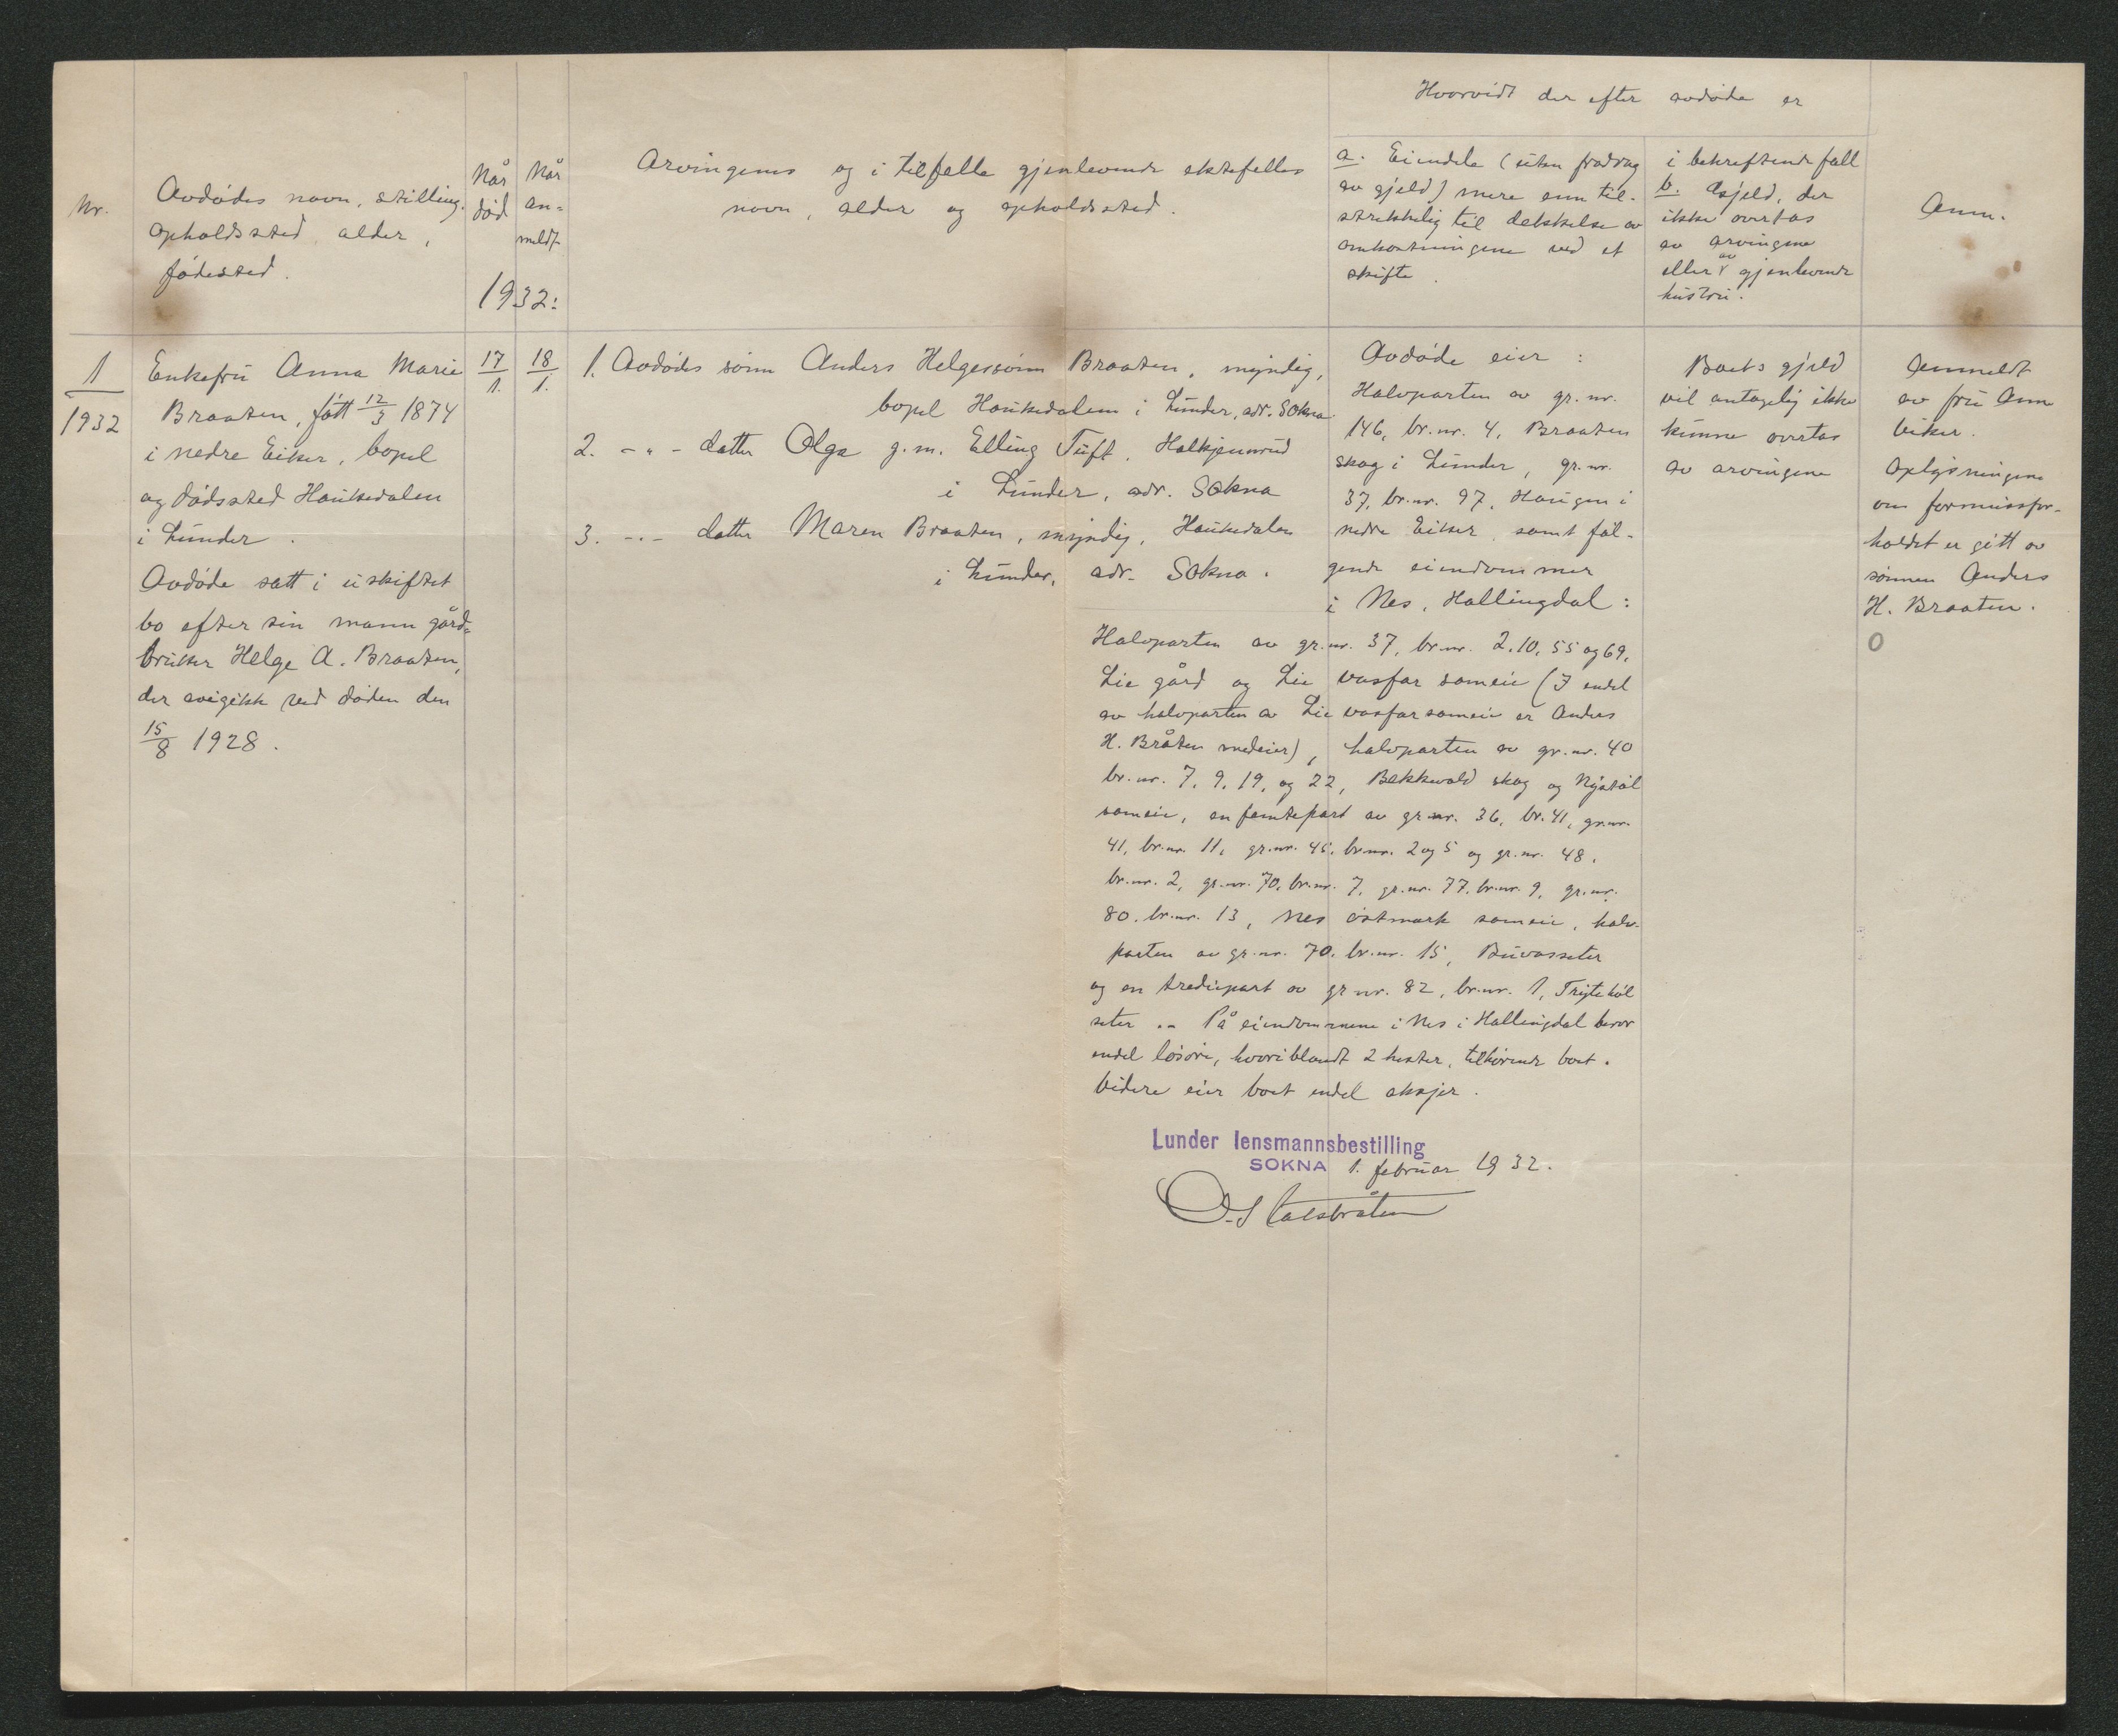 Hvorvidt der efter avdøde er
Nr.
Avdødes navn, stilling,
opholdssted, alder,
fødested.
Når
død
Når
an-
meldt
1932:
Arvingenes og i tilfelle gjenlevende ektefelles
navn, alder og opholdssted.
a. Eiendele (uten fradrag
av gjeld) mere enn til-
strekkelig til dekkelse av
omkostningene ved et
skifte.
i bekreftende fall
b. Gjeld, der
ikke overtas
av arvingene
eller av gjenlevende
hustru.
Anm.
1
1932
Enkefru Anna Marie
Braaten, født 12/3 1874
i nedre Eiker, bopel
og dødssted Haukedalen
i Lunder.
Avdøde satt i uskiftet
bo efter sin mann gård-
bruker Helge A. Braaten,
der avgikk ved døden den
15/8 1928.
17/1.
18/1.
1. Avdødes sønn Anders Helgessønn Braaten, myndig,
bopel Haukedalen i Lunder, adr. Sokna
2. -"- datter Olga g.m. Elling Tuft,
i Lunder, adr. Sokna
3. -"- datter Maren Braaten, myndig, Haukedalen
i Lunder, adr. Sokna.
Avdøde eier:
Halvparten av gr. nr.
146, br. nr. 4, Braaten
skog i Lunder, gr. nr.
37, br. nr. 97, Haugen i
nedre Eiker, samt føl-
gende eiendommer
i Nes, Hallingdal:
Halvparten av gr. nr. 37, br. nr. 2, 10, 55 og 69,
Lie gård og Lie vasfar sameie (I endel
av halvparten av Lie vasfar sameie er Anders
H. Bråten medeier), halvparten av gr. nr. 40
br. nr. 7, 9, 19, og 22, skog og Nystøl
sameie, en femtepart av gr. nr. 36, br. 41, gr. nr.
41, br. nr. 11, gr. nr. 45, br. nr. 2 og 5 og gr. nr. 48,
br. nr. 2, gr. nr. 70, br. nr. 7, gr. nr. 77, br. nr. 9, gr. nr.
80, br. nr. 13, Nes østmark sameie, halv-
parten av gr. nr. 70, br. nr. 15, Buvasseter
og en trediepart av gr nr. 82, br. nr. 1,
seter. - På eiendommene i Nes i Hallingdal beror
endel løsøre, hvoriblandt 2 hester, tilhørende boet.
Videre eier boet endel aksjer.
Boets gjeld
vil antagelig ikke
kunne overtas
av arvingene
Anmeldt
av fru Anne
Viker.
Oplysningene
om formuesfor-
holdet er gitt av
sønnen Anders
H. Braaten.
0
Lunder lensmannsbestilling
SOKNA 1. februar 1932.